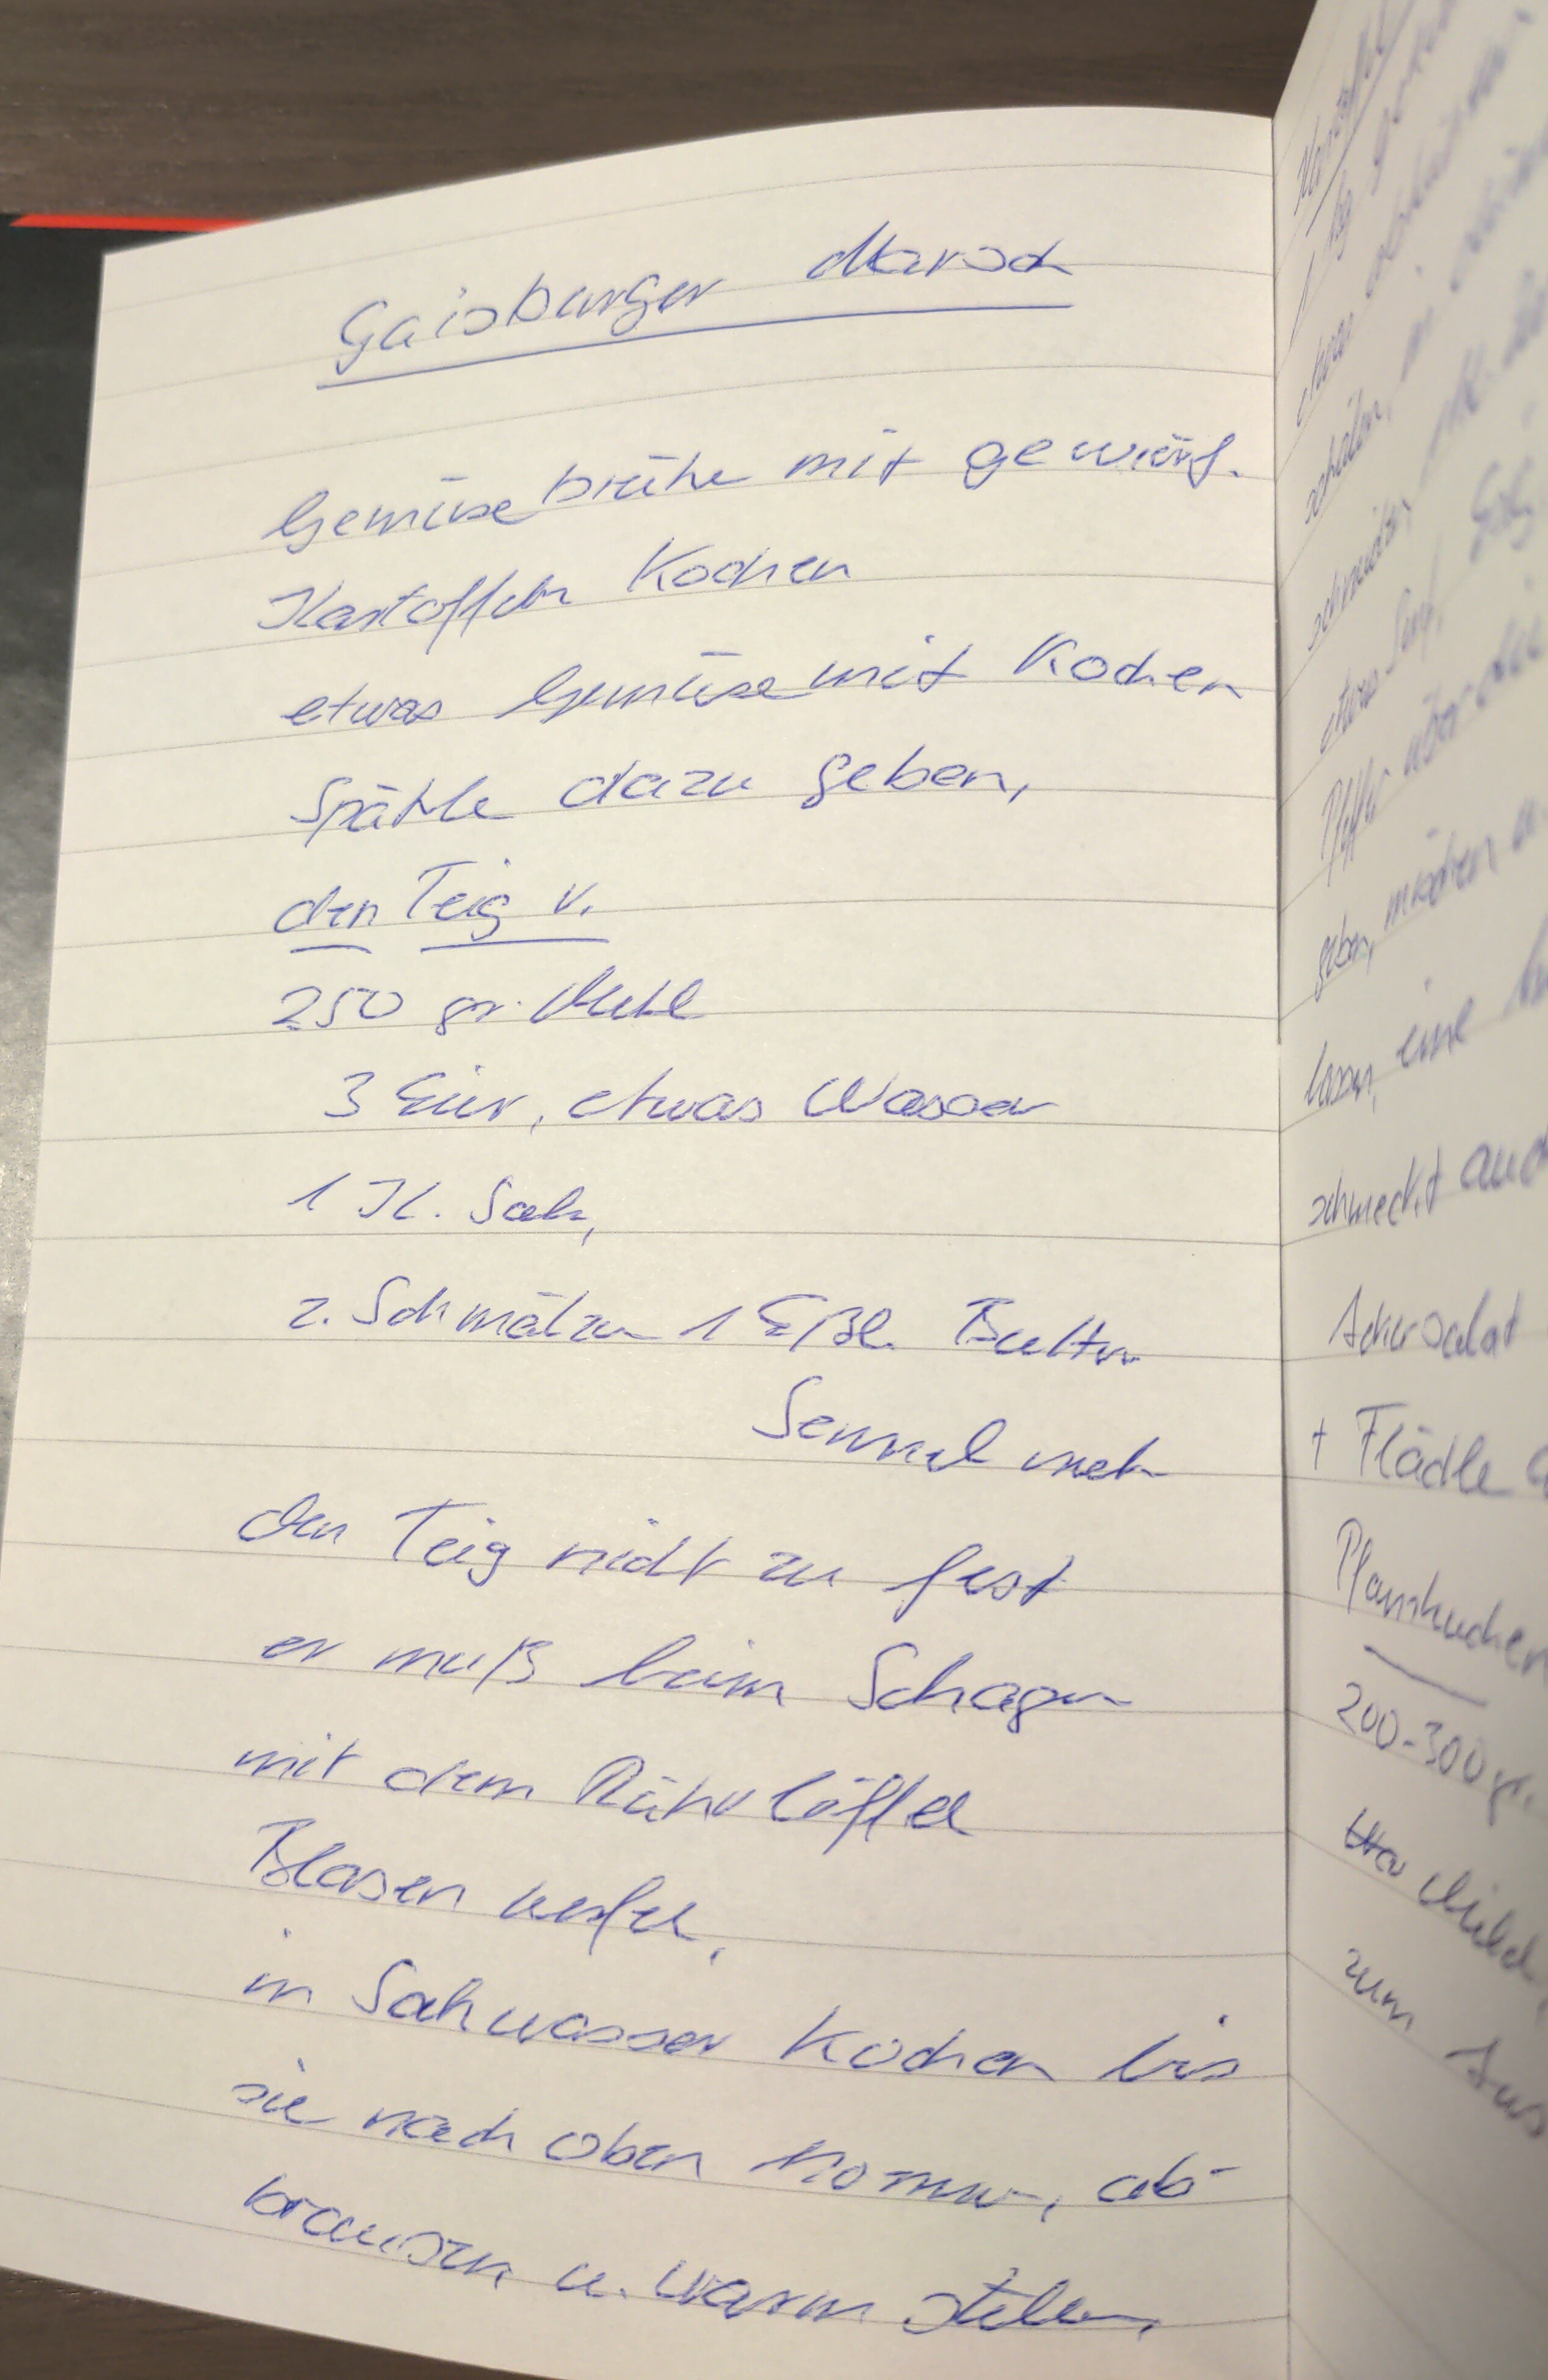 Gaisburger Marsch
Gemüsebrühe mit gewürf.
Kartoffeln Kochen
etwas Gemüse mit Kochen
Spätzle dazu geben,
den Teig v.
250 gr. Mehl
3 Eier, etwas Wasser
1 Kl. Salz,
z. Schmälzen 1 Eßl. Butter
Semmel mehl
den Teig nicht zu fest
er muß beim Schagen
mit dem Rührlöffel
Blasen werfen.
in Salzwasser Kochen bis
sie nach oben Kommen, ab-
brausen u. warm stellen,
1 kg
etwas
schälen, in
schneiden,
etwas Senf, Eßig
Pfeffer über die
geben, mischen u.
lassen, eine
schmeckt auch
Ackersalat
+ Flädle
Pfannkuchen
200-300 gr.
Milch
zum Aus